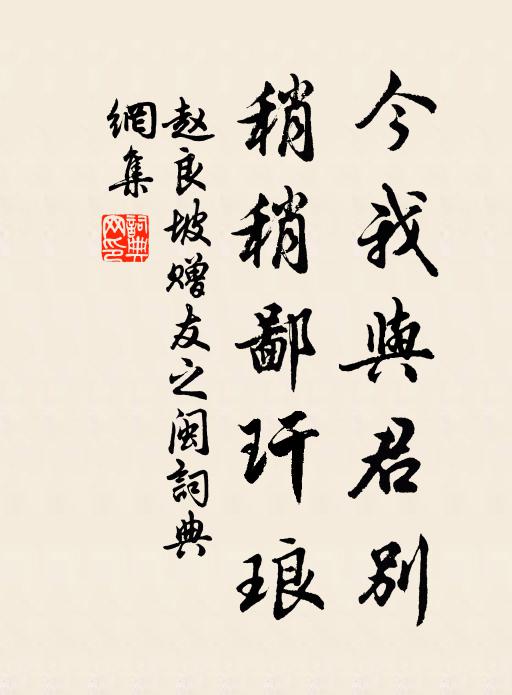 今我與君别
稍稍鄙玕琅
赵良坡赠友之闽詞典
網集
詞典
网印